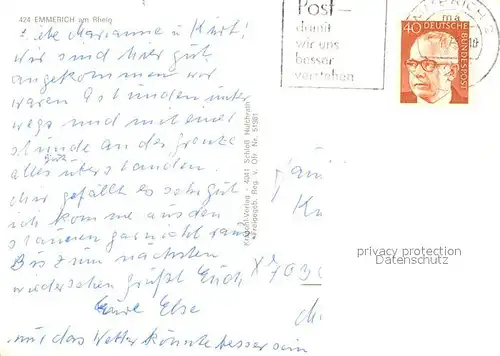 424 EMMERICH am Rhein
Liebe Marianne u Kurt!
wir sind hier gut
angekommen wir
waren 8 stunden unter
wegs und mit einer
stunde an der Grenze
gut
alles überstanden.
hier gefällt es sehr gut
ich komme aus dem
staunen garnicht raus
Bis zum nächsten
wiedersehen grüßt Euch
Eure Else
und das Wetter könnte besser sein
Krapohl-Verlag - 4041 Schloß Hülchrath
Freigegeb. Reg. v. Obr. Nr.
Post-
damit
wir uns
besser
verstehen
EMMERICH
ma
40 DEUTSCHE
BUNDESPOST
Fami
K
X 703
privacy protection
Datenschutz